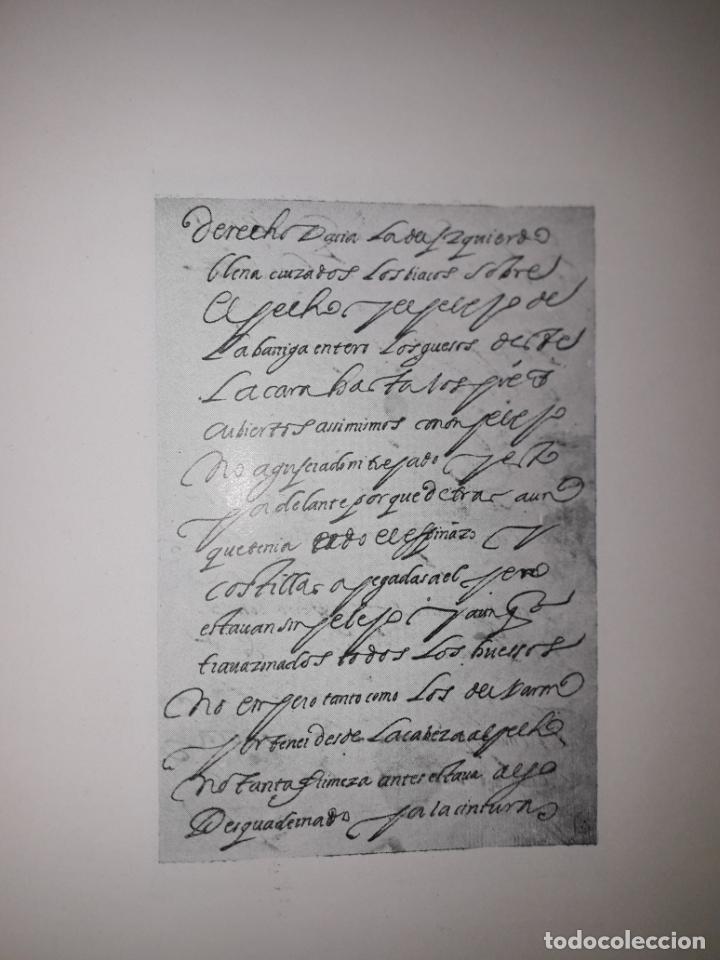 derecho Dacia La del yzquierdo
llena cruzados Los bracos sobre
El pecho y el pelejo de
La barriga entero Los guesos deste
La cara hasta los pies
cubiertos assimismos con pelejo
No agujerado ni tresado y esto
por delante porque detras aun
que tenia todo el espinazo y
costillas apegadas a el pero
estavan sin pelejo y aunq
travazonados todos Los huessos
No empero tanto como Los del varon
por tener desde La cabeza al pecho
No tanta firmeza antes estava algo
Desquadernado por la cintura
todocoleccion
todocoleccion.net